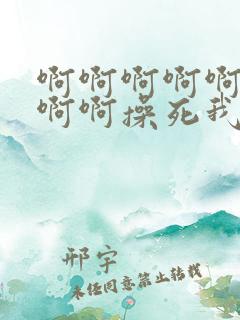 啊啊啊啊啊
啊啊操死我
邢宇
未经同意禁止转载